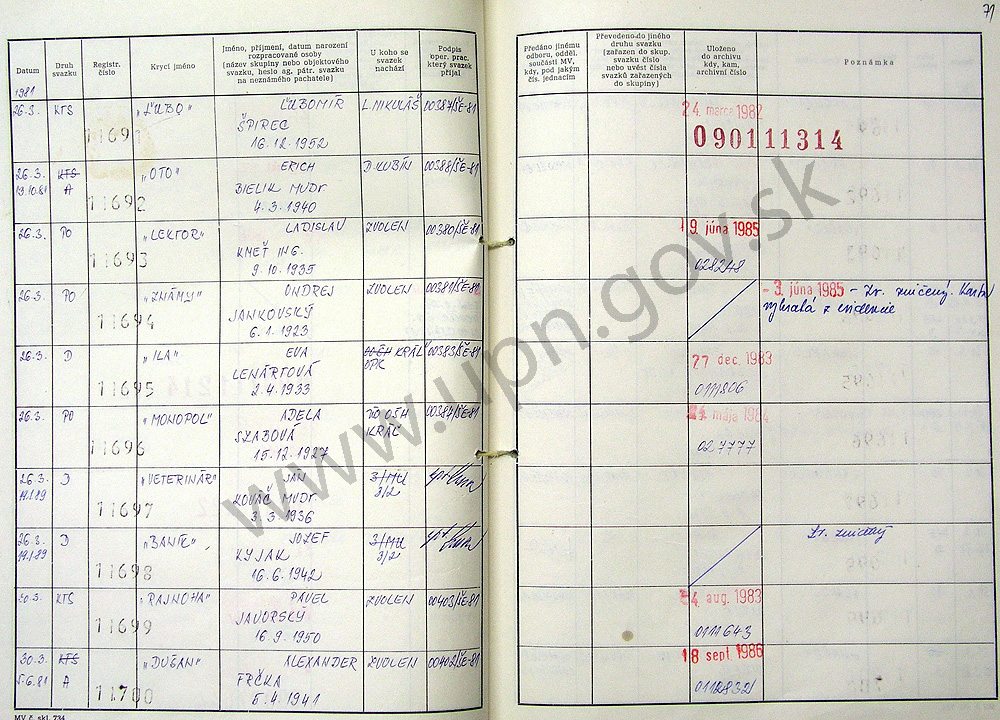 71
Datum
Druh svazku
Registr. číslo
Krycí jméno
Jméno, příjmení, datum narození
rozpracované osoby
(název skupiny nebo objektového
svazku, heslo ag. pátr. svazku
na neznámého pachatele)
U koho se
svazek
nachází
Podpis
oper. prac.
který svazek
přijal
Předáno jinému
odboru, odděl.
součásti MV,
kdy, pod jakým
čís. jednacím
Převedeno do jiného
druhu svazku
(zařazen do skup.
svazku číslo
nebo uvést čísla
svazků zařazených
do skupiny)
Uloženo
do archivu
kdy, kam,
archivní číslo
Poznámka
1981
26.3. KTS 11691 "ĽUBO" ĽUBOMÍR L. MIKULÁŠ 00387/ŠE-81 24. marca 1982
ŠPIREC 090111314
16.12.1952
26.3. KTS "OTO" ERICH D. KUBÍN 00388/ŠE-81
19.10.81 A 11692 BIELIK MUDr
4.3.1940
26.3. PO "LEKTOR" LADISLAV ZVOLEN 00380/ŠE-81 19. júna 1985
11693 KMEŤ ING.
9.10.1935 028248
26.3. PO "ZNÁMY" ONDREJ ZVOLEN 00381/ŠE-81 - 3. júna 1985 - Zv. zničený. Karta
11694 JANKOVSKÝ vybratá z evidencie
6.1.1923
26.3. D "ILA" EVA KRÁĽ 00383/ŠE-81 27 dec. 1983
11695 LENÁRTOVÁ OPK
2.4.1933 0111806
26.3. PO "MONOPOL" ADELA OŠH 00384/ŠE-81 mája 1984
11696 SZABOVÁ KRÁĽ
15.12.1927 027777
26.3. D "VETERINÁR" JÁN 3/MU
11697 KOVÁČ MUDr 3/2
3.3.1936
26.3. D "BANÍK" JOZEF 3/MU Zv. zničený
11698 KYJAK 3/2
16.6.1942
30.3. KTS "RAJNOHA" PAVEL ZVOLEN 00403/ŠE-81 aug. 1983
11699 JAVORSKÝ
16.9.1950 0111643
30.3. KTS "DUŠAN" ALEXANDER ZVOLEN 00402/ŠE-81 18 sept. 1986
5.6.81 A 11700 FRČKA
5.4.1941 0112832
MV č. skl. 734
www.upn.gov.sk